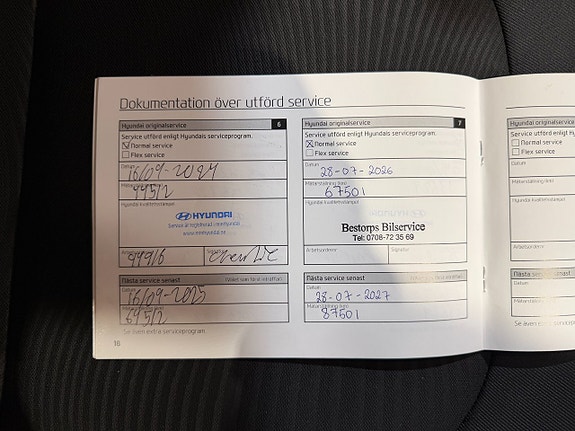 Dokumentation över utförd service
Hyundai originalservice 6
Service utförd enligt Hyundais serviceprogram.
Normal service
Flex service
Datum
16/09-2024
49512
Hyundai kvalitetsstämpel
HYUNDAI
Service är registrerad i myHyundai
www.myhyundai.se
Nästa service senast
16/09-2025
64512
Se även extra serviceprogram
16
Hyundai originalservice 7
Service utförd enligt Hyundais serviceprogram.
Normal service
Flex service
Datum
28-07-2026
Mätarställning (km)
67501
Hyundai kvalitetsstämpel
Bestorps Bilservice
Tel: 0708-72 35 69
Arbetsordernr
Signatur
Nästa service senast
Datum
28-07-2027
87501
Se även extra serviceprogram
Hyundai originalservice
Service utförd enligt
Normal service
Flex service
Datum
Mätarställning (km)
Hyundai kvalitetsstämpel
Arbetsordernr
Nästa service senast
Datum
Se även extra